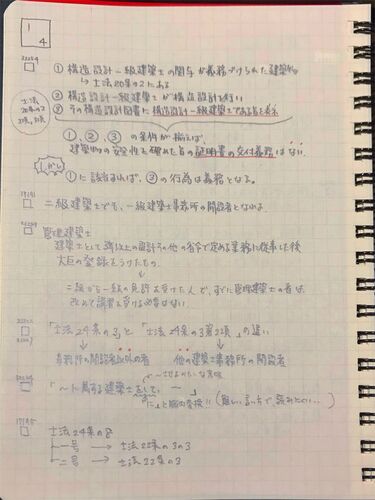 1
4
① 構造設計一級建築士の関与が義務づけられた建築物
↳ 士法20条の2にある
② 構造設計一級建築士が構造設計を行い
③ その構造設計図書に構造設計一級建築士である旨を表示
士法
20条の2
①、②、③の条件が揃えば、
建築物の安全性を確めた旨の証明書の交付義務はない。
しかし
①に該当すれば、③の行為は義務となる。
二級建築士でも、一級建築士事務所の開設者となれる。
管理建築士
建築士として3年以上の設計その他の省令で定める業務に従事した後
大臣の登録をうけたもの。
↓
二級から一級の免許を受けた人で、すでに管理建築士の者は、
改めて講習を受ける必要はない
「士法24条の3」と「士法24条の3第2項」の違い
↓ ↓
事務所の開設者以外の者 他の建築士事務所の開設者
「〜に属する建築士をして、〜」
に」と脳内変換!!(難しい言い方で読みにくい…)
士法24条の8
一号 → 士法22条の3の3
二号 → 士法22条の3